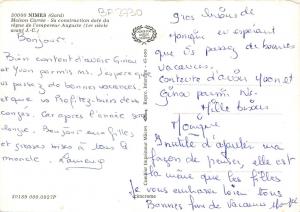 30000 NIMES (Gard)
Maison Carrée - Sa construction date du
règne de l'empereur Auguste (1er siècle
avant J.-C.)
BF 2730
Bonjour,
Bien content d'avoir Gina
et Yvon parmi ns. J'espère que
vs passez de bonnes vacances,
et que vs Profitez bien de vos
Car après l'année sera
longue. Bonjour aux filles,
et grosses bises à tous le
monde.
gros bisous de
en espérant
que vs passez de bonnes
vacances.
contente d'avoir Yvon et
Gina parmi ns.
Mille bisous
Monique
Inutile d'ajouter ma
façon de penser, elle est
la même que les filles
Je vous embrasse bien tous
Bonnes fins de vacances